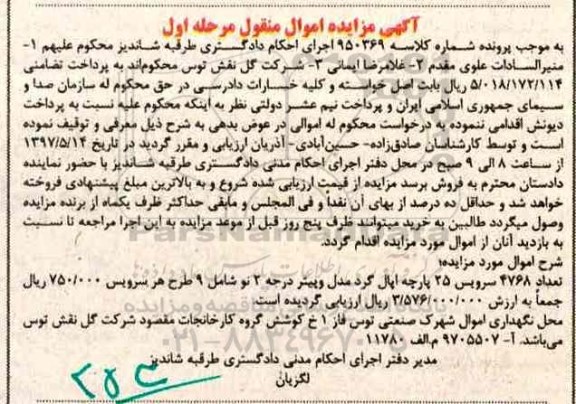 آگهی مزایده اموال منقول مرحله اول
به موجب پرونده شماره کلاسه ۹۵۰۳۶۹ اجرای احکام دادگستری طرقبه شاندیز محکوم علیهم ۱-
منیرالسادات علوی مقدم ۲- غلامرضا ایمانی ۳- شرکت گل نقش توس محکوم‌اند به پرداخت تضامنی
۵/۰۱۸/۱۷۲/۱۱۴ ریال بابت اصل خواسته و کلیه خسارات دادرسی در حق محکوم له سازمان صدا و
سیمای جمهوری اسلامی ایران و پرداخت نیم عشر دولتی نظر به اینکه محکوم علیه نسبت به پرداخت
دیونش اقدامی ننموده به درخواست محکوم له اموالی در عوض بدهی به شرح ذیل معرفی و توقیف نموده
است و توسط کارشناسان صادق‌زاده- حسین‌آبادی- آذریان ارزیابی و مقرر گردید در تاریخ ۱۳۹۷/۵/۱۴
از ساعت ۸ الی ۹ صبح در محل دفتر اجرای احکام مدنی دادگستری طرقبه شاندیز با حضور نماینده
دادستان محترم به فروش برسد مزایده از قیمت ارزیابی شده شروع و به بالاترین مبلغ پیشنهادی فروخته
خواهد شد و حداقل ده درصد از بهای آن نقداً و فی المجلس و مابقی حداکثر ظرف یکماه از برنده مزایده
وصول میگردد طالبین به خرید میتوانند ظرف پنج روز قبل از موعد مزایده به این اجرا مراجعه تا نسبت
به بازدید آنان از اموال مورد مزایده اقدام گردد.
شرح اموال مورد مزایده؛
تعداد ۴۷۶۸ سرویس ۲۵ پارچه اپال گرد مدل ویتر درجه ۲ نو شامل ۹ طرح هر سرویس ۷۵۰/۰۰۰ ریال
جمعاً به ارزش ۳/۵۷۶/۰۰۰/۰۰۰ ریال ارزیابی گردیده است
محل نگهداری اموال شهرک صنعتی توس فاز ۱ خ کوشش گروه کارخانجات مقصود شرکت گل نقش توس
می‌باشد. آ- ۹۷۰۵۵۰۷ م.الف ۱۱۷۸۰
مدیر دفتر اجرای احکام مدنی دادگستری طرقبه شاندیز
لگزیان
ParsNamadData
۰۲۱-۸۸۳۴۹۶۷۰